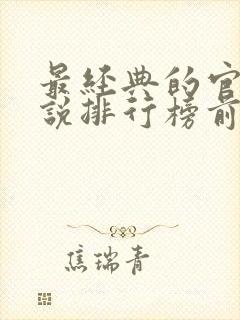 最经典的官
说排行榜前
焦瑞青